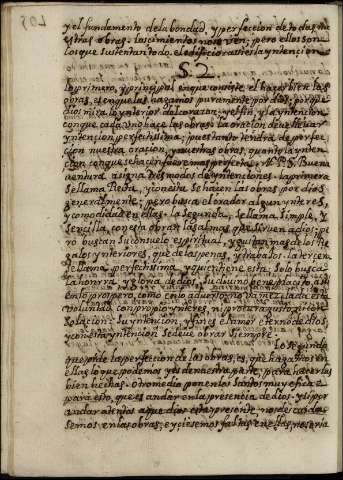 y el fundamento de la bondad, y perfeccion de todas nu
estras obras. los cimientos no se ven; pero ellos son
los que sustentan todo el edificio assi es la yntencion
§. 2.
Lo primero, y principal en que consiste el hazer bien las
obras, es en que las hagamos puramente por dios; porque
dios mira lo ynterior del corazon, y el fin, y la yntencion
con que cada uno haze las obras la oracion de
yntencion perfectissima; pues tanto tendra de perfec
cion nuestra oracion, y nuestras obras, quanto la ynten
cion con que se hazen fuere mas perfecta. N. P. S. Buena
ventura asigna tres modos de yntenciones. la primera
se llama Recta, y con esta se hazen las obras por dios
generalmente; pero busca el orador algun ynteres,
y comodidad en ellas. la Segunda, se llama Simple, y
Sencilla, con esta obran las almas que sirven a dios; pe
ro buscan su consuelo espiritual, y gustan mas de los re
galos ynteriores, que de las penas, y trabajos. la tercera
se llama perfectissima y quien tiene esta, Solo busca
la honrra y gloria de dios, Su divino beneplacito, assi
en lo prospero, como en lo adverso, no va mezclada esta
voluntad con proprio ynteres, ni procura gusto, ni con
solacion: Su yntencion, y fin es el amor eterno de dios,
con esta yntencion se debe obrar siempre
Lo segundo
en que pende la perfeccion de las obras, es, que hagamos en
ellas lo que podemos y es de nuestra parte, para hacerlas
bien hechas. Otro medio ponen los Santos muy eficaz
para esto, que es andar en la presencia de dios. y si por
andar atentos a que dios esta presente, nos descuida
semos en las obras, e hiciesemos faltas en ellas, no seria